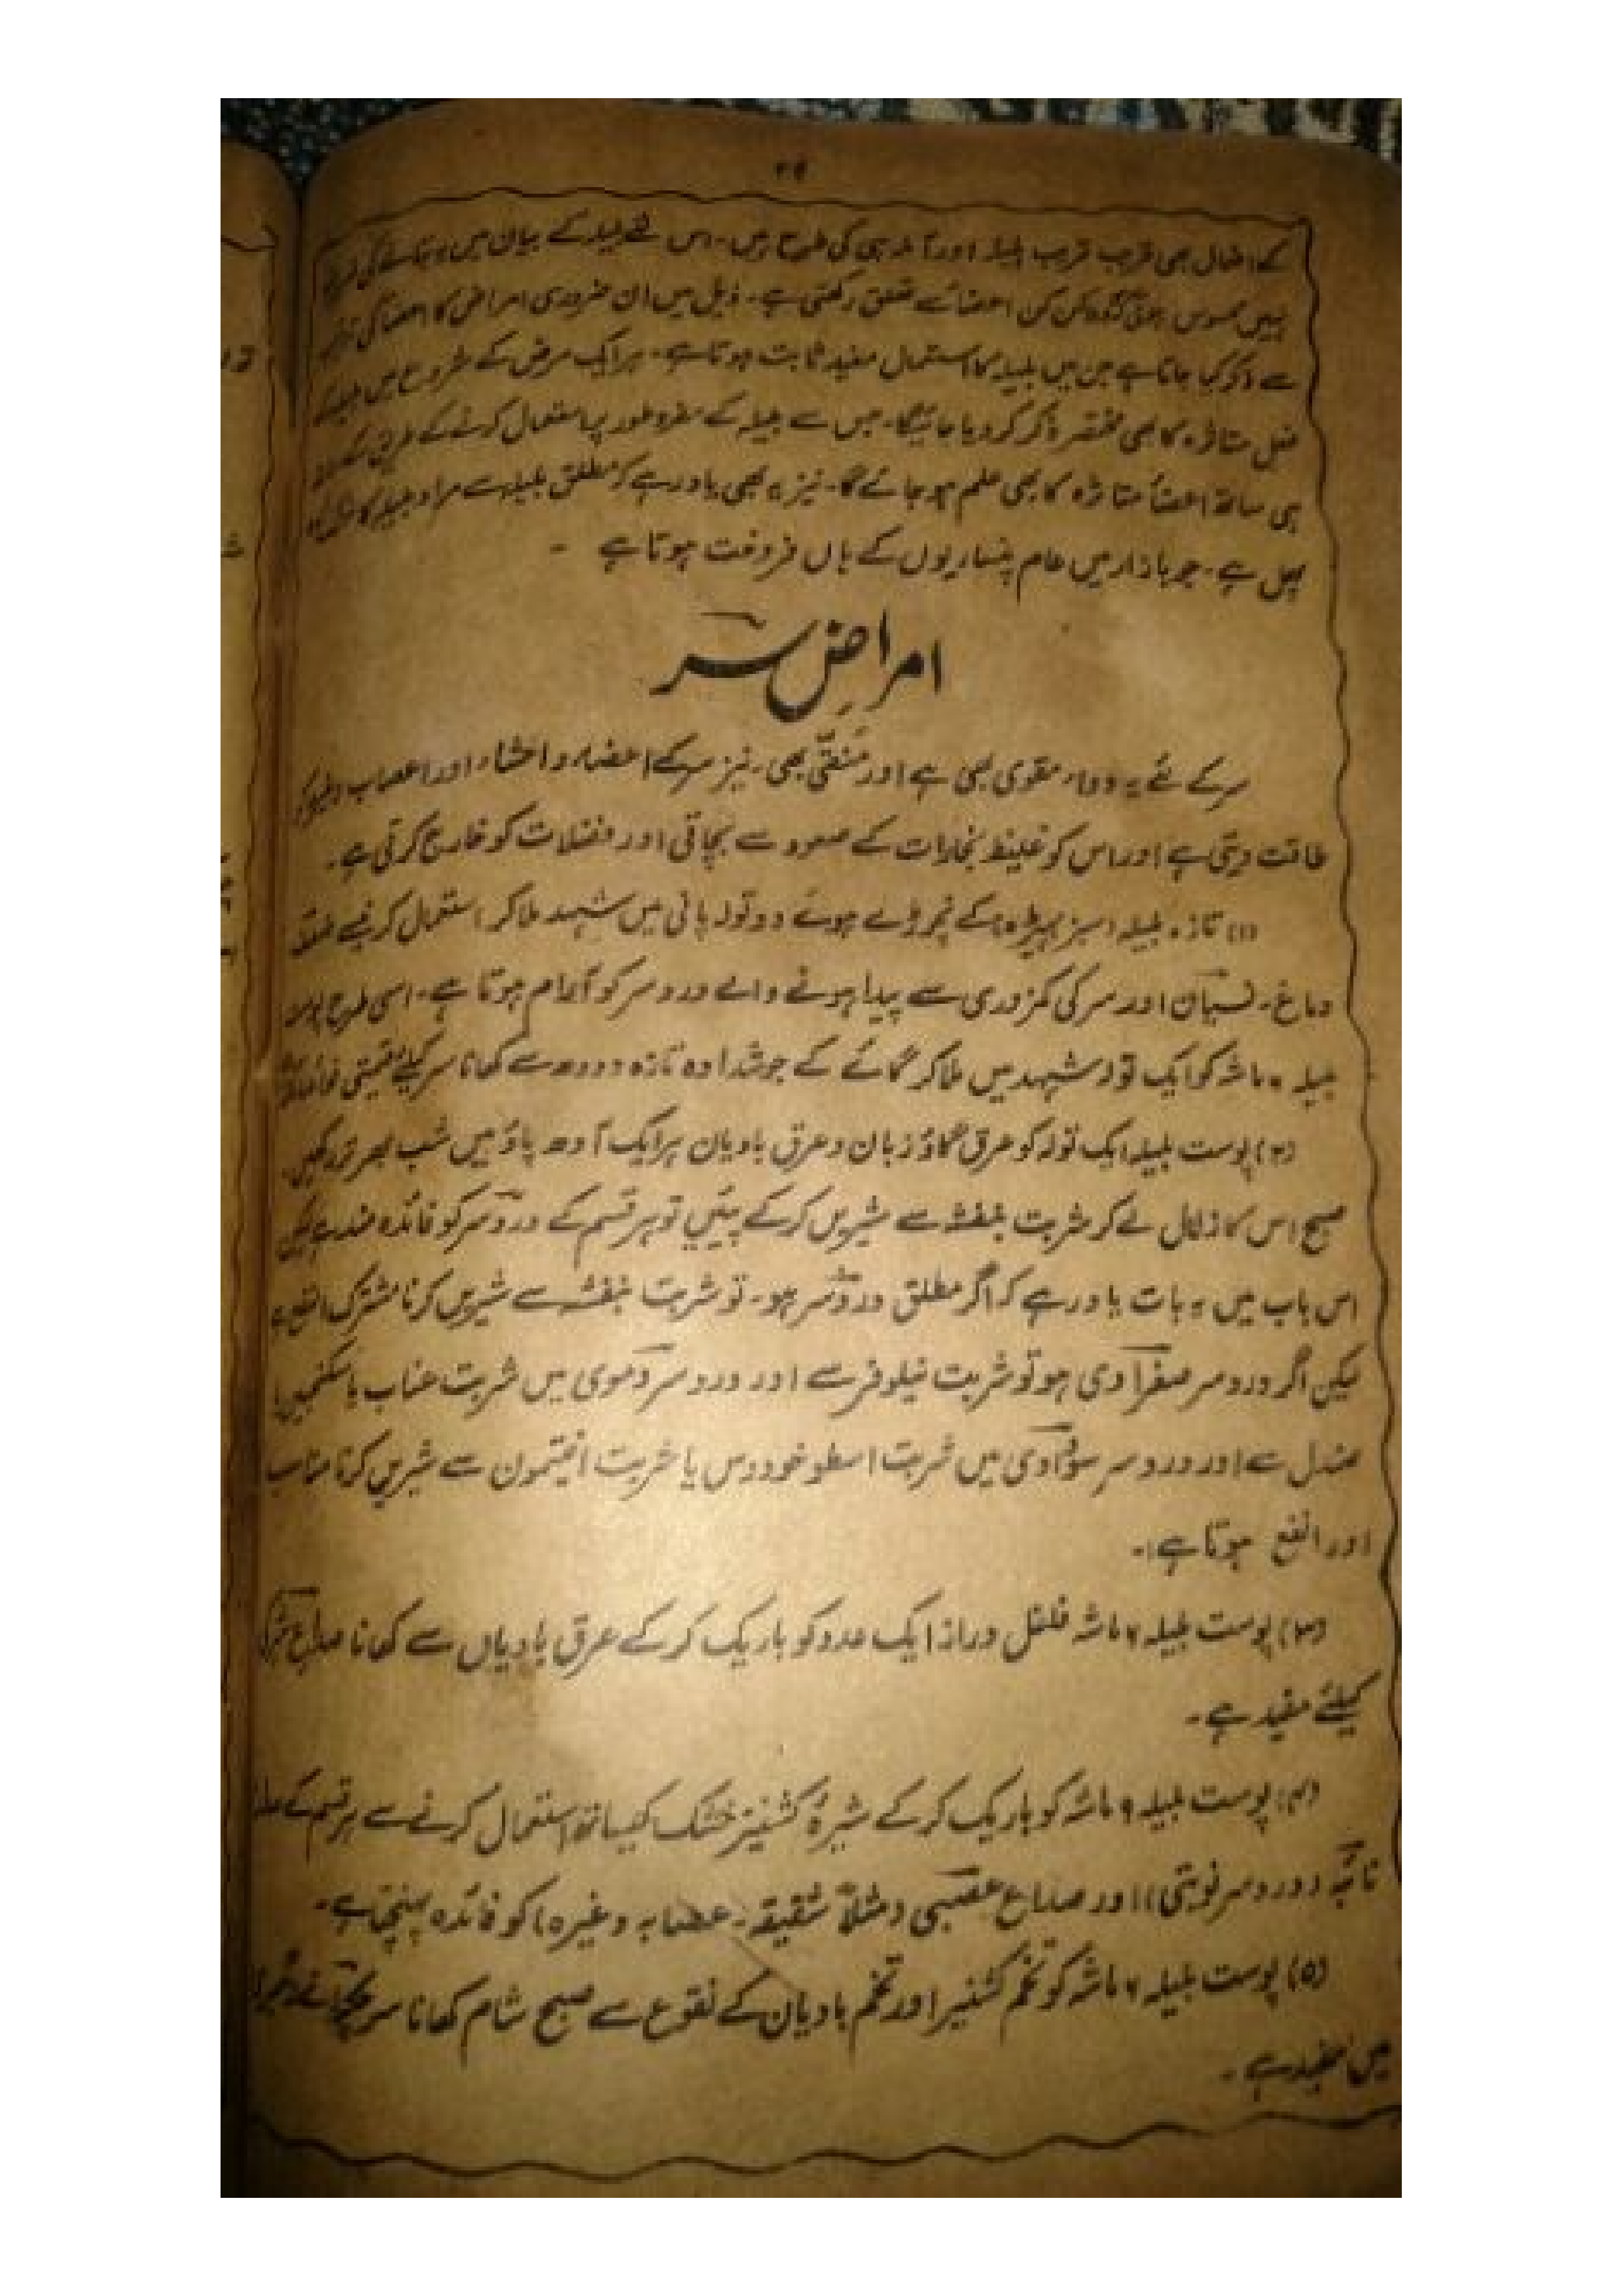 کے افعال بھی قریب قریب ہلیلہ اور آملہ ہی کی طرح ہیں۔ اس لئے بلیلہ کے بیان میں یہ بتانے کی
نہیں محسوس ہوتی کہ وہ کن کن اعضا سے تعلق رکھتی ہے۔ ذیل میں ان ضروری امراض کا اعضا کی
سے ذکر کیا جاتا ہے جن میں بلیلہ کا استعمال مفید ثابت ہوتا ہے۔ ہر ایک مرض کے شروع میں
فعل متاثرہ کا بھی مختصر ذکر کر دیا جائیگا۔ جس سے بلیلہ کے مفرد طور پر استعمال کرنے کے طریق کے
ہی ساتھ اعضاء متاثرہ کا بھی علم ہو جائے گا۔ نیز یہ بھی یاد رہے کہ مطلق بلیلہ سے مراد بلیلہ کا
پھل ہے۔ جو بازار میں عام پنساریوں کے ہاں فروخت ہوتا ہے ۔
امراضِ سر
سر کے لئے یہ دوا مقوی بھی ہے اور مُنَقّی بھی۔ نیز سر کے اعضاء و احشاء اور اعصاب
طاقت دیتی ہے اور اس کو غلیظ بخارات کے صعود سے بچاتی اور فضلات کو خارج کرتی ہے۔
(۱) تازہ بلیلہ (سبز بہیڑہ) کے نچوڑے ہوئے دو تولہ پانی میں شہد ملا کر استعمال کرنیسے ضعف
دماغ۔ نسیان اور سر کی کمزوری سے پیدا ہونے والے درد سر کو آرام ہوتا ہے۔ اسی طرح پوست
بلیلہ ۷ ماشہ کو ایک تولہ شہد میں ملا کر گائے کے جوشدادہ تازہ دودھ سے کھانا سر کیلئے قیمتی
(۲) پوست بلیلہ ایک تولہ کو عرق گاؤزبان و عرق بادیان ہر ایک آدھ پاؤ میں شب بھر تر رکھیں۔
صبح اس کا زلال لے کر شربت بنفشہ سے شیریں کرکے پئیں تو ہر قسم کے درد سر کو فائدہ مند ہے لیکن
اس باب میں یہ بات یاد رہے کہ اگر مطلق درد سر ہو۔ تو شربت بنفشہ سے شیریں کرنا مشترک النفع ہے
لیکن اگر درد سر صفراوی ہو تو شربت نیلوفر سے اور درد سر دموی میں شربت عناب یا سکنجبین یا
صندل سے اور درد سر سوداوی میں شربت اسطوخودوس یا شربت افتیمون سے شیریں کرنا مناسب
اور انفع ہوتا ہے۔
(۳) پوست بلیلہ ۷ ماشہ فلفل دراز ایک عدد کو باریک کر کے عرق بادیاں سے کھانا صداع
کیلئے مفید ہے۔
(۴) پوست بلیلہ ۹ ماشہ کو باریک کر کے شیرۂ کشنیز خشک کیساتھ استعمال کرنے سے ہر قسم کے
نائبہ (درد سر نوبتی)، اور صداع عصبی (مثلاً شقیقہ۔ عصابہ وغیرہ) کو فائدہ پہنچتا ہے۔
(۵) پوست بلیلہ ۷ ماشہ کو تخم کشنیز اور تخم بادیان کے نقوع سے صبح شام کھانا سر
میں مفید ہے۔